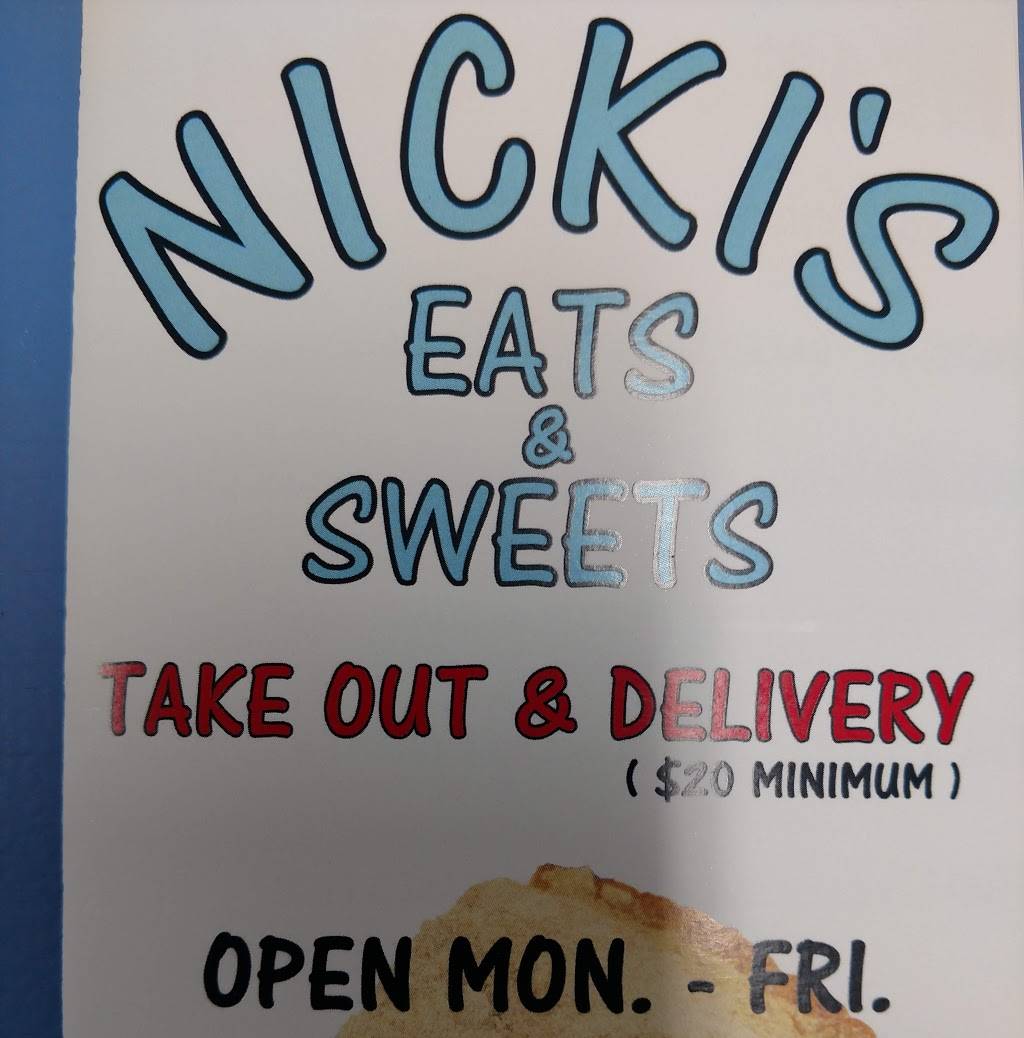 NICKI'S
EATS
&
SWEETS
TAKE OUT & DELIVERY
( $20 MINIMUM )
OPEN MON. - FRI.